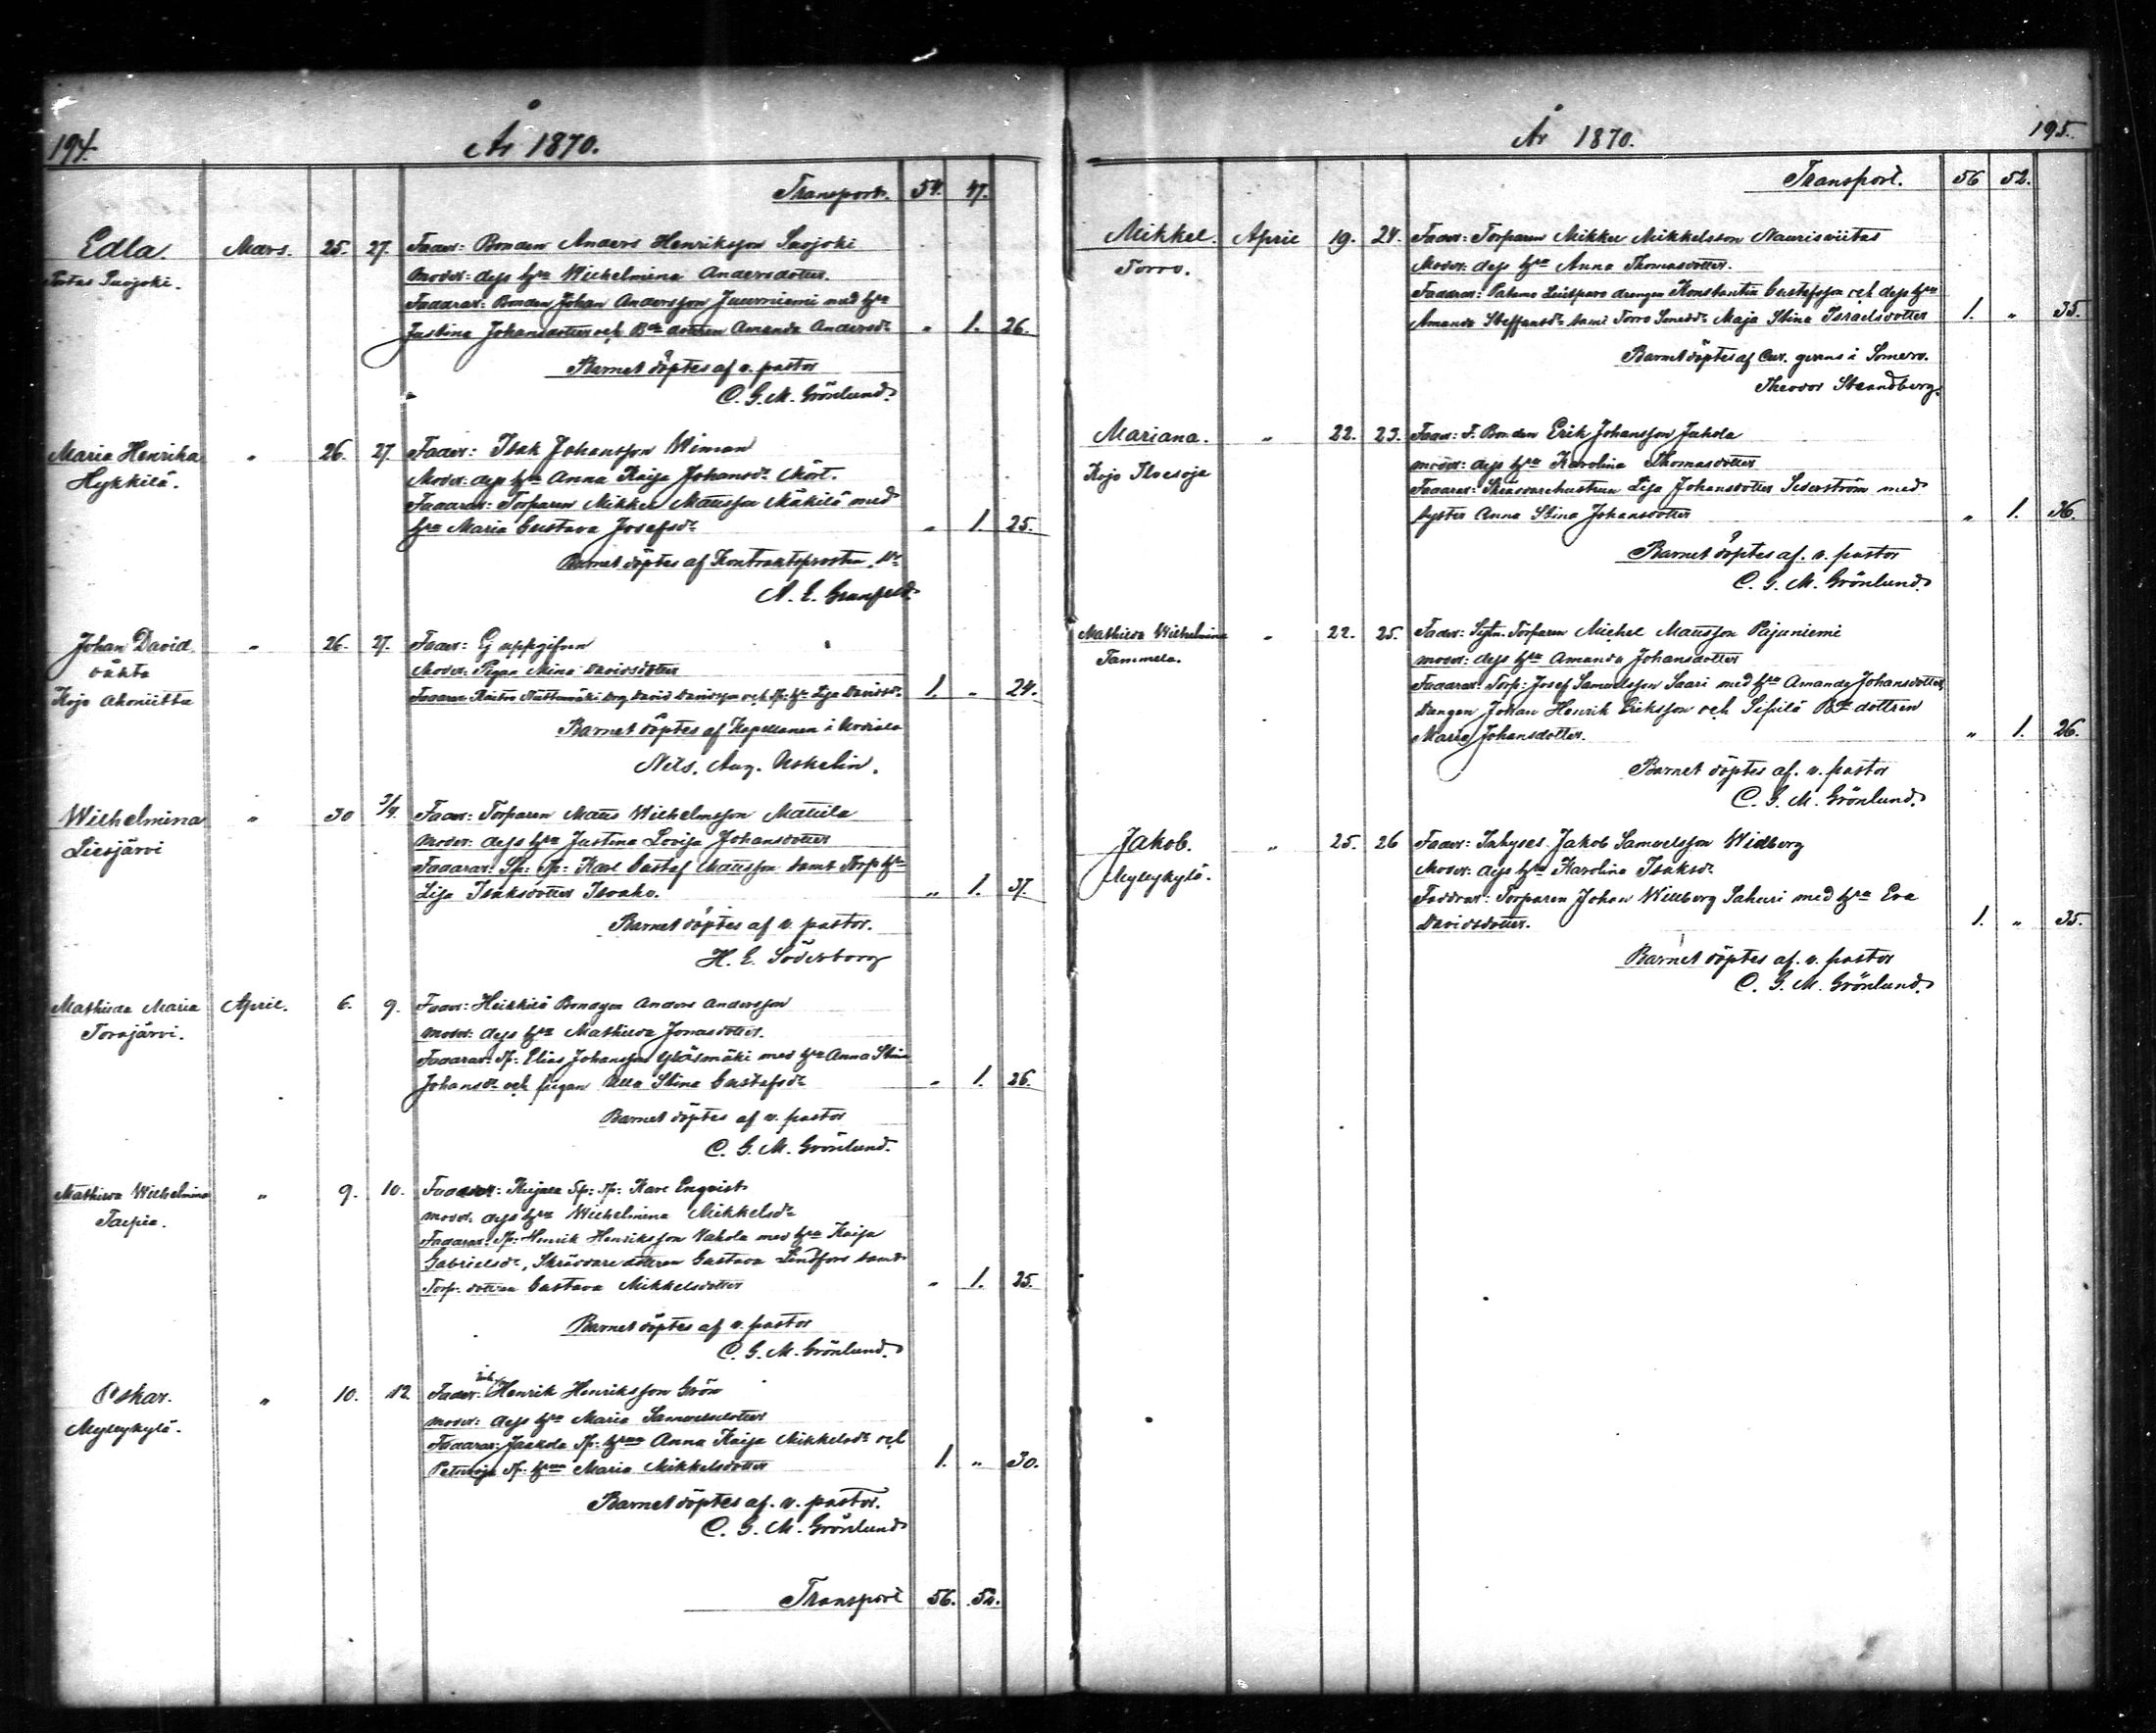 194.
År 1870.
Transport. 54. 47.
Edla Mars. 25. 27. Fader: Bonden Anders Henriksson Suojoki
Suojoki.
Moder: dess hu Wilhelmina Andersdotter.
Faddrar: Bonden Johan Andersson Juurniemi med hu
Justina Johansdotter och Bde dottren Amanda Andersdr „ 1. 26.
Barnet döptes af v. pastor
C. G. M. Grönlund.
Maria Henrika „ 26. 27. Fader: Isak Johansson Wiman
Hykkilä.
Moder: dess hu Anna Kaisa Johansdr
Faddrar: Torparen Mikkel Mattsson Mäkilä med
hu Maria Gustava Josefsdr „ 1. 25.
Barnet döptes af Kontraktsprosten
A. E. Granfelt.
Johan David „ 26. 27. Fader: Ej uppgifven
oäkta
Moder: Pigan Mina Davidsdotter
Kojo Ahoniitta
David Davidsson och Lisa Davidsdr 1. „ 24.
Barnet döptes af Kapellanen i Urdiala
Nils. Aug. Uskelin.
Wilhelmina „ 30 3/4. Fader: Torparen Matts Wilhelmsson Mattila
Liesjärvi
Moder: dess hu Justina Lovisa Johansdotter
Faddrar: Sp: Tp: Karl Gustaf Mattsson samt Torp hu
Lisa Isaksdotter Isoaho. „ 1. 37.
Barnet döptes af v. pastor.
H. E. Söderborg
Mathilda Maria April. 6. 9. Fader: Heikkilä Bondson Anders Andersson
Torajärvi.
Moder: dess hu Mathilda Jonasdotter.
Faddrar: Tp: Elias Johansson med hu Anna Stina
Johansdr och pigan Ulla Stina Gustafsdr „ 1. 26.
Barnet döptes af v. pastor
C. G. M. Grönlund.
Mathilda Wilhelmina „ 9. 10. Fader: Kujala Sp: Tp: Karl Enqvist
Talpia.
Moder: dess hu Wilhelmina Mikkelsdr
Faddrar: Tp: Henrik Henriksson Vahola med hu Kaisa
Gabrielsdr, Skräddare dottren Gustava Lindfors samt
Torp. dottren Gustava Mikkelsdotter „ 1. 25.
Barnet döptes af v. pastor
C. G. M. Grönlund.
Oskar. „ 10. 12. Fader: Henrik Henriksson Grön
Myllykylä.
Moder: dess hu Maria Samuelsdotter
Faddrar: Jaakola Tp: hun Anna Kaisa Mikkelsdr och
Tp: hun Maria Mikkelsdotter 1. „ 30.
Barnet döptes af. v. pastor.
C. G. M. Grönlund
Transport 56. 52.
195.
År 1870.
Transport. 56 52.
Mikkel. April 19. 24. Fader: Torparen Mikkel Mikkelsson Naurisviitas
Torro.
Moder: dess hu Anna Thomasdotter.
Faddrar: drengen Konstantin Gustafsson och dess hu
Amanda Steffansdr samt Torro Maja Stina Israelsdotter 1. „ 35.
Barnet döptes af Cur. gerens i Somero.
Theodor Strandberg.
Mariana. „ 22. 23. Fader: F. Bonden Erik Johansson Jakola
Kojo Ilvesoja
Moder: dess hu Karolina Thomasdotter
Faddrar: Skräddarehustrun Lisa Johansdotter Sederström med
syster Anna Stina Johansdotter „ 1. 36.
Barnet döptes af. v. pastor
C. G. M. Grönlund.
Mathilda Wilhelmina „ 22. 25. Fader: Torparen Michel Mattsson Pajuniemi
Tammela.
Moder: dess hu Amanda Johansdotter
Faddrar: Torp: Josef Samuelsson Saari med hu Amanda Johansdotter,
Drengen Johan Henrik Eriksson och Sipilä Bde dottren
Maria Johansdotter. „ 1. 26.
Barnet döptes af. v. pastor
C. G. M. Grönlund.
Jakob. „ 25. 26 Fader: Inhyses. Jakob Samuelsson Widberg
Myllykylä.
Moder: dess hu Karolina Isaksdr
Faddrar: Torparen Johan Willberg Sahari med hu Eva
Davidsdotter. 1. „ 35.
Barnet döptes af. v. pastor
C. G. M. Grönlund.